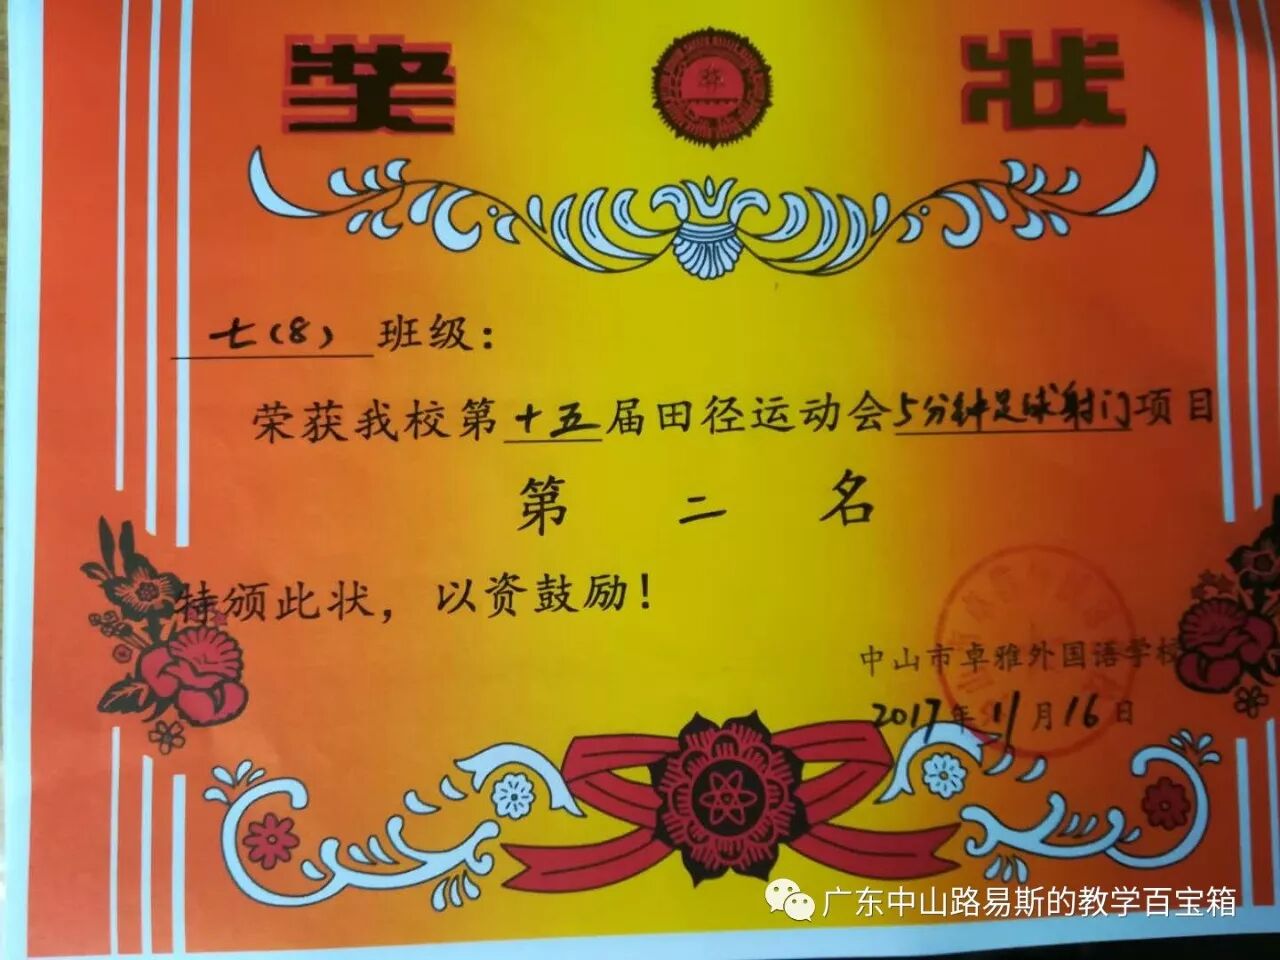 奖状
七(8)班级：
荣获我校第十五届田径运动会5分钟足球射门项目
第二名
特颁此状，以资鼓励！
中山市卓雅外国语学校
2017年11月16日
广东中山路易斯的教学百宝箱